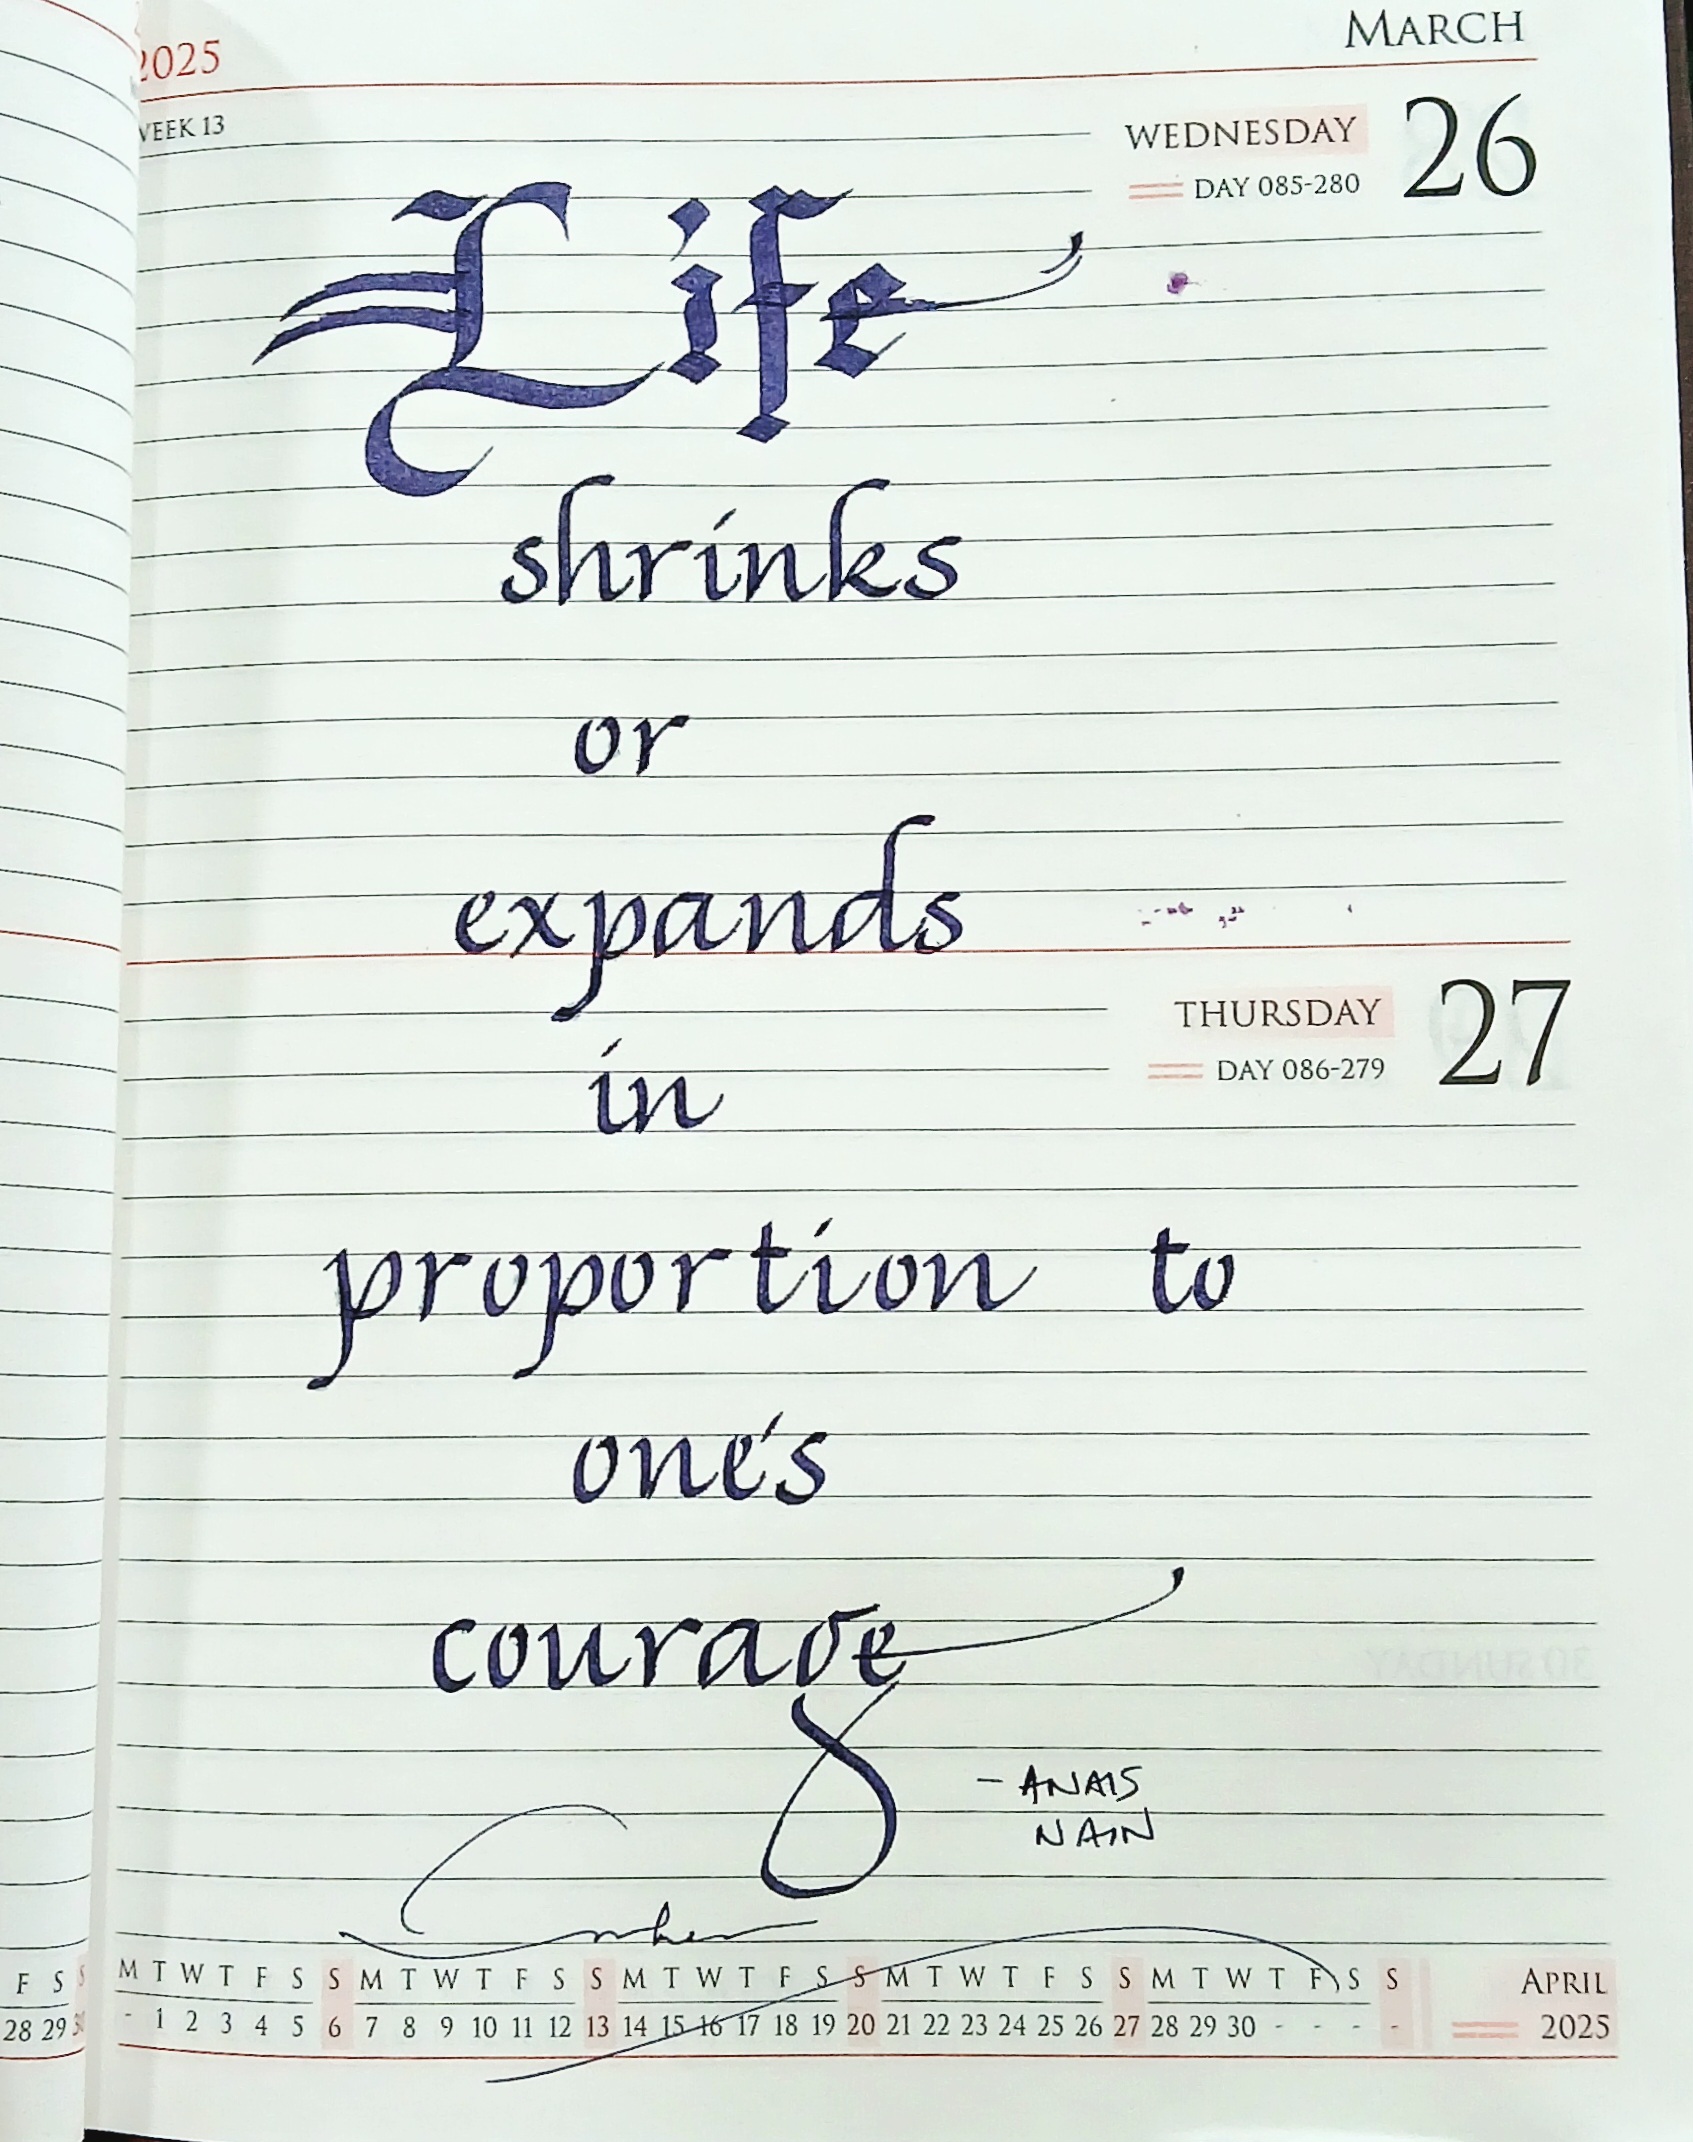 2025 MARCH
WEEK 13 WEDNESDAY 26
DAY 085-280
Life
shrinks
or
expands
THURSDAY 27
DAY 086-279
in
proportion to
one's
courage
- ANAIS
NAIN
F S S M T W T F S S M T W T F S S M T W T F S S M T W T F S S M T W T F S S APRIL
28 29 30 - 1 2 3 4 5 6 7 8 9 10 11 12 13 14 15 16 17 18 19 20 21 22 23 24 25 26 27 28 29 30 - - - - 2025